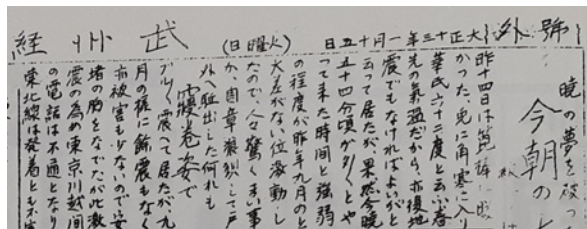 號外
大正十三年一月十五日
(火曜日)
武州経
暁の夢を破つ
今朝の
昨十四日は
かつた、兎に角寒に入り
華氏六十二度と云ふ春
先の気温だから、亦復地
震でもなければよいがと
云つて居たが、果然今暁
五十四分頃が多くとや
つて来た時間と強弱
の程度が昨年九月のと
大差がない位激動し
たので、人々驚くまい事
か、周章狼狽して戸
外へ駈出した何れも
寝巻姿で
ブルブル震へて居たが、九
月の様に餘震もなく
亦被害も少ないので安
堵の胸をなでたが此激
震の為め東京川越間
の電話は不通となり
東北線は発着とも不